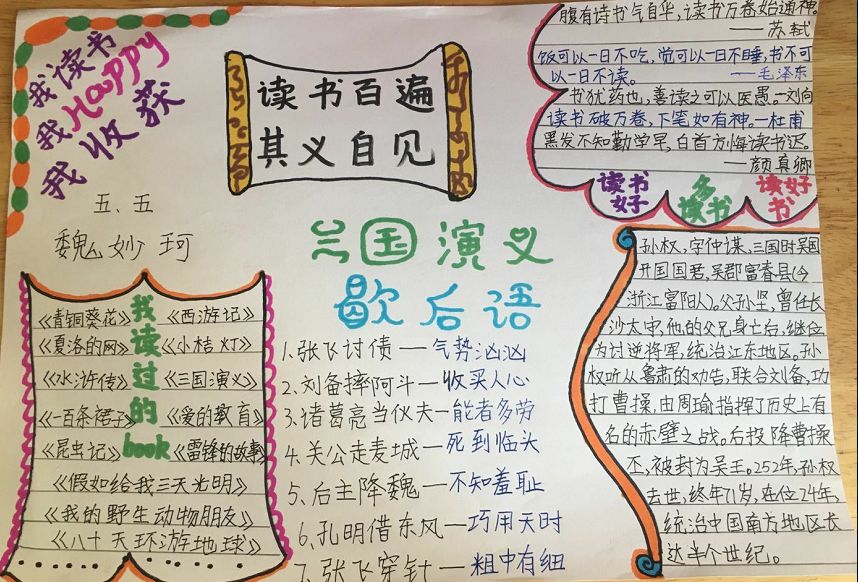 我读书
我Happy
我收获
五、五
魏妙珂
读书百遍
其义自见
腹有诗书气自华，读书万卷始通神。
——苏轼
饭可以一日不吃，觉可以一日不睡，书不可
以一日不读。——毛泽东
书犹药也，善读之可以医愚。—刘向
读书破万卷，下笔如有神。—杜甫
黑发不知勤学早，白首方悔读书迟。
—颜真卿
读书好
多读书
读好书
三国演义
歇后语
1、张飞讨债—气势汹汹
2、刘备摔阿斗—收买人心
3、诸葛亮当伙夫—能者多劳
4、关公走麦城—死到临头
5、后主降魏—不知羞耻
6、孔明借东风—巧用天时
7、张飞穿针—粗中有细
我读过的book
《青铜葵花》《西游记》
《夏洛的网》《小桔灯》
《水浒传》《三国演义》
《一百条裙子》《爱的教育》
《昆虫记》《雷锋的故事》
《假如给我三天光明》
《我的野生动物朋友》
《八十天环游地球》
孙权，字仲谋，三国时吴国
开国国君，吴郡富春县（今
浙江富阳人）。父孙坚，曾任长
沙太守，他的父兄身亡后，继位
为讨逆将军，统治江东地区。孙
权听从鲁肃的劝告，联合刘备，功
打曹操，由周瑜指挥了历史上有
名的赤壁之战。后投降曹操
丕，被封为吴王。252年，孙权
去世，终年71岁，在位24年，
统治中国南方地区长
达半个世纪。